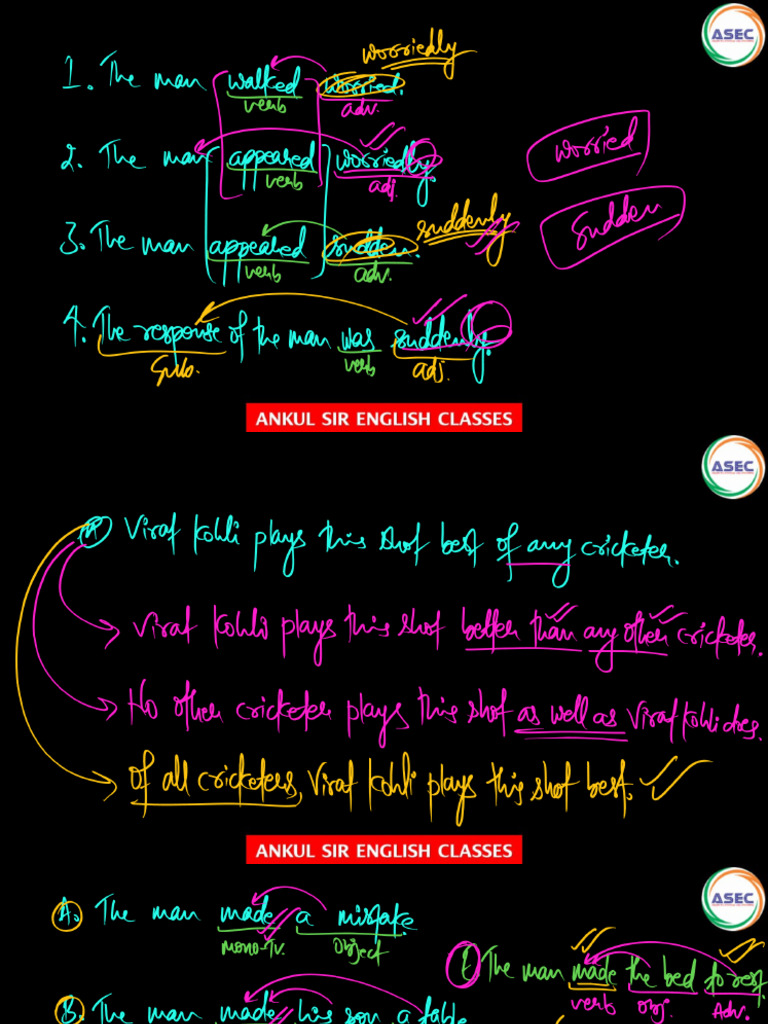 ASEC
worriedly
1. The man walked worried.
verb adv.
2. The man appeared worriedly.
verb adj.
worried
3. The man appeared sudden.
verb adv.
suddenly
Sudden
4. The response of the man was suddenly.
Sub. verb adj.
ANKUL SIR ENGLISH CLASSES
ASEC
A Virat Kohli plays this shot best of any cricketer.
Virat Kohli plays this shot better than any other cricketer.
No other cricketer plays this shot as well as Virat Kohli does.
Of all cricketers, Virat Kohli plays this shot best.
ANKUL SIR ENGLISH CLASSES
ASEC
A. The man made a mistake
mono-Tv. object
E The man made the bed to rest.
verb obj. Adv.
B. The man made his son a table